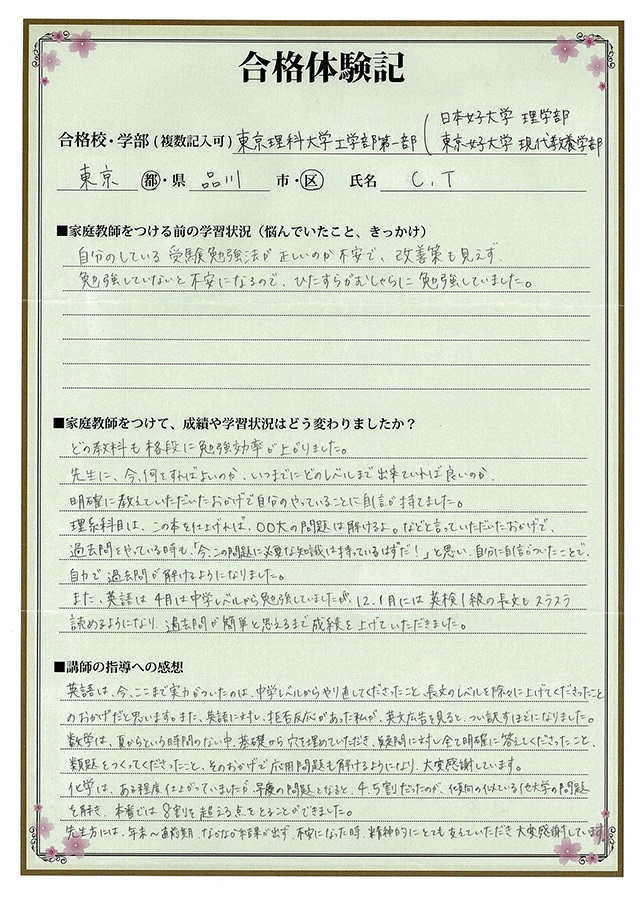 合格体験記
合格校・学部(複数記入可) 東京理科大学工学部第一部 日本女子大学 理学部
東京女子大学 現代教養学部
東京 都・県 品川 市・区 氏名 C.T
■家庭教師をつける前の学習状況（悩んでいたこと、きっかけ）
自分のしている受験勉強法が正しいのか不安で、改善策も見えず
勉強していないと不安になるので、ひたすらがむしゃらに勉強していました。
■家庭教師をつけて、成績や学習状況はどう変わりましたか？
どの教科も格段に勉強効率が上がりました。
先生に、今、何をすればよいのか、いつまでにどのレベルまで出来ていれば良いのか
明確に教えていただいたおかげで自分のやっていることに自信が持てました。
理系科目は、この本を仕上げれば、〇〇大の問題は解けるよ。などと言っていただいたおかげで、
過去問をやっている時も、「今、この問題に必要な知識は持っているはずだ！」と思い、自分に自信がついたことで、
自力で過去問が解けるようになりました。
また、英語は4月は中学レベルから勉強していましたが、12、1月には英検1級の長文もスラスラ
読めるようになり、過去問が簡単と思えるまで成績を上げていただきました。
■講師の指導への感想
英語は、今、ここまで実力がついたのは、中学レベルからやり直してくださったこと、長文のレベルを除々に上げてくださったこと
のおかげだと思います。また、英語に対し、拒否反応があった私が、英文広告を見ると、つい訳すほどになりました。
数学は、夏からという時間のない中、基礎から穴を埋めていただき、疑問に対し全て明確に答えてくださったこと、
類題をつくってくださったこと、そのおかげで応用問題も解けるようになり、大変感謝しています。
化学は、ある程度仕上がっていましたが、早慶の問題となると、4、5割だったのが、傾向の似ている他大学の問題
を解き、本番では8割を超える点をとることができました。
先生方には、年末〜直前期、なかなか結果が出ず、不安になった時、精神的にとても支えていただき大変感謝しています。